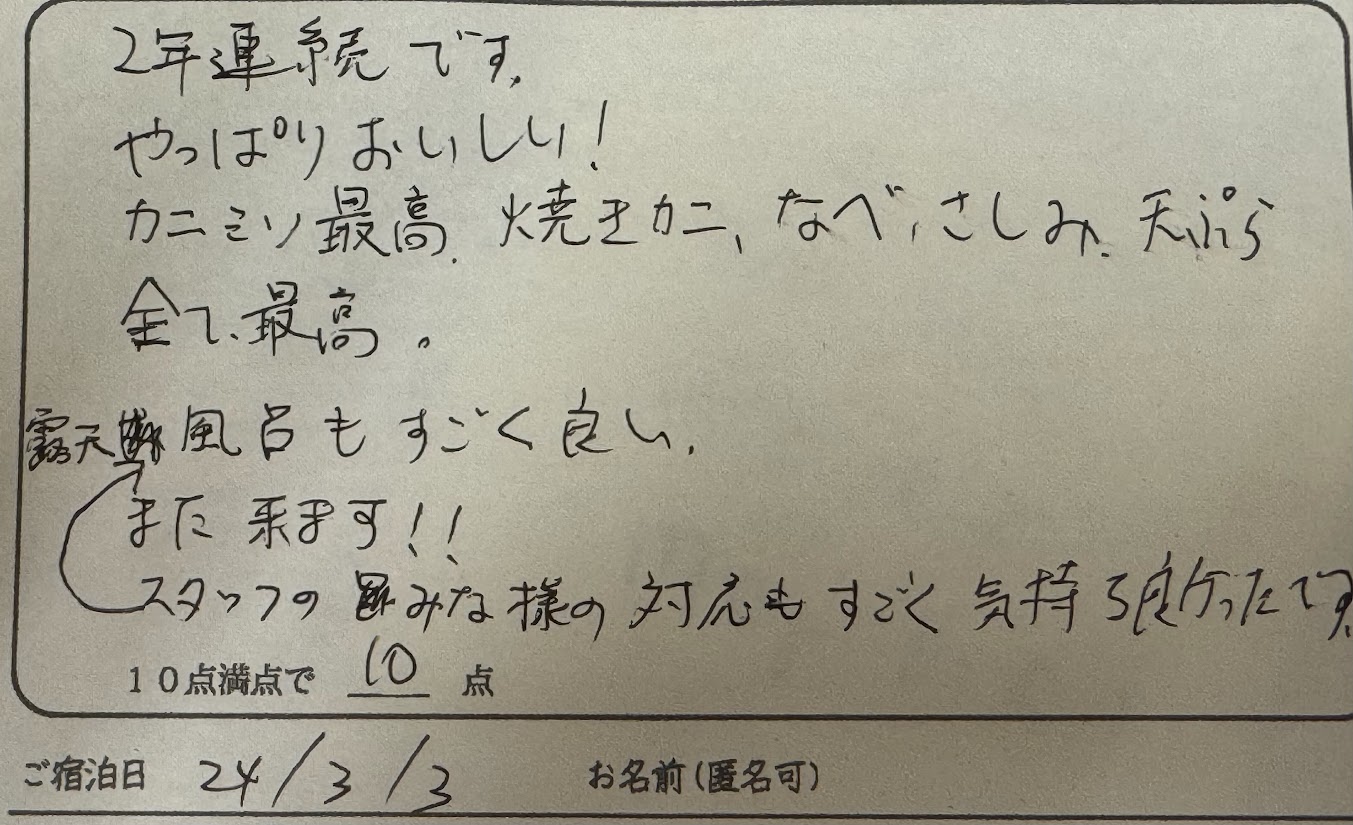 2年連続です.
やっぱりおいしい!
カニミソ最高. 焼きカニ、なべ、さしみ、天ぷら
全て、最高。
露天風呂もすごく良い.
また来ます!!
スタッフのみな様の対応もすごく気持ち良かったです.
10点満点で 10 点
ご宿泊日 24/3/3 お名前(匿名可)